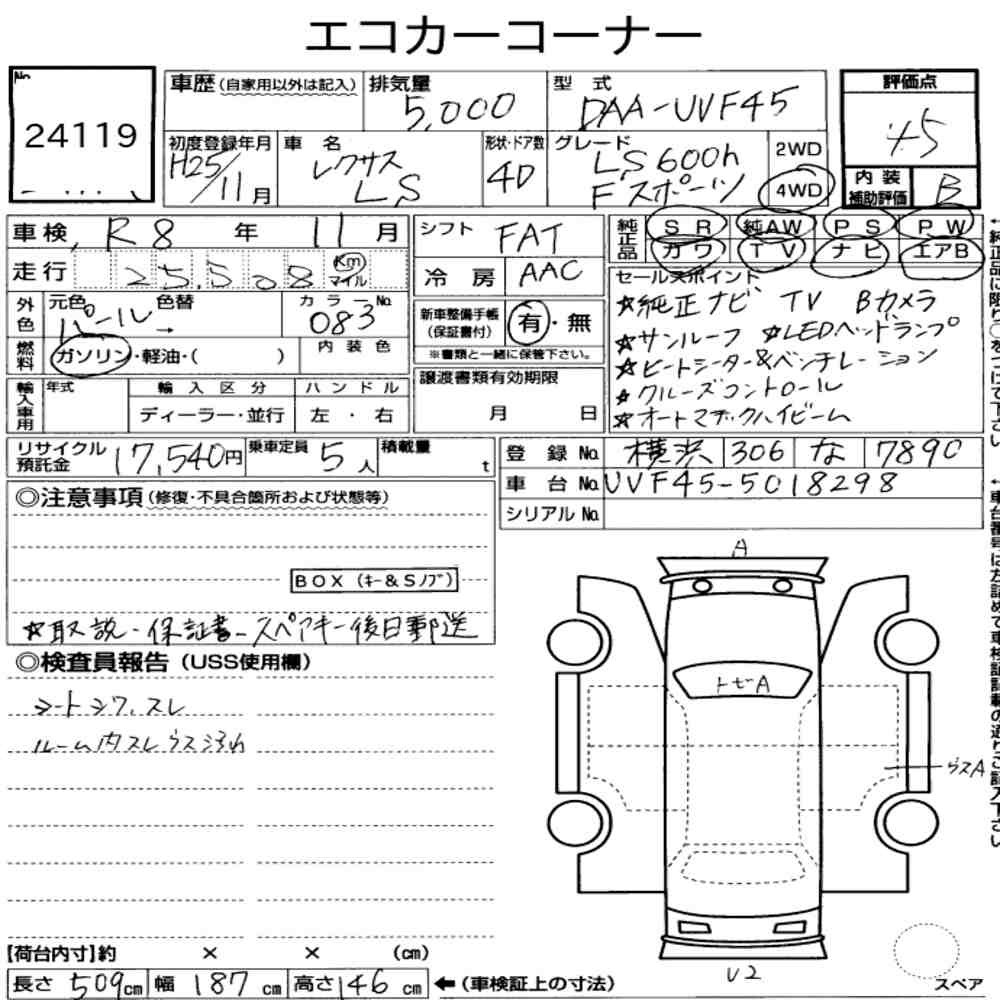 エコカーコーナー
No
24119
車歴 (自家用以外は記入)
排気量 5,000
型式 DAA-UVF45
評価点 45
初度登録年月 H25/11月
車名 レクサス LS
形状・ドア数 4D
グレード LS600h Fスポーツ
2WD
4WD
内装補助評価 B
車検 R8年 11月
シフト FAT
純正品 SR 純AW PS PW
カワ TV ナビ エアB
走行 25,508 Km マイル
冷房 AAC
セールスポイント
☆純正ナビ TV Bカメラ
☆サンルーフ ☆LEDヘッドランプ
☆ヒートシーター&ベンチレーション
☆クルーズコントロール
☆オートマチックハイビーム
外色 元色 パール → 色替
カラーNo 083
新車整備手帳(保証書付) 有・無
※書類と一緒に保管下さい。
燃料 ガソリン・軽油・( )
内装色
譲渡書類有効期限
月 日
輸入車用 年式 輸入区分 ハンドル
ディーラー・並行 左・右
リサイクル預託金 17,540円
乗車定員 5人
積載量 t
登録No. 横浜 306 な 7890
車台No. UVF45-5018298
シリアルNo.
◎注意事項 (修復・不具合箇所および状態等)
BOX (キー&Sノブ)
☆取説-保証書-スペアキー後日郵送
◎検査員報告 (USS使用欄)
シートシワ,スレ
ルーム内スレウスヨゴレ
A
トビA
ウスA
U2
スペア
【荷台内寸】約 × × (cm)
長さ 509cm 幅 187cm 高さ 146cm
←(車検証上の寸法)
←純正品に限り○をつけて下さい
←車台番号は左詰めで車検証記載の通りご記入下さい